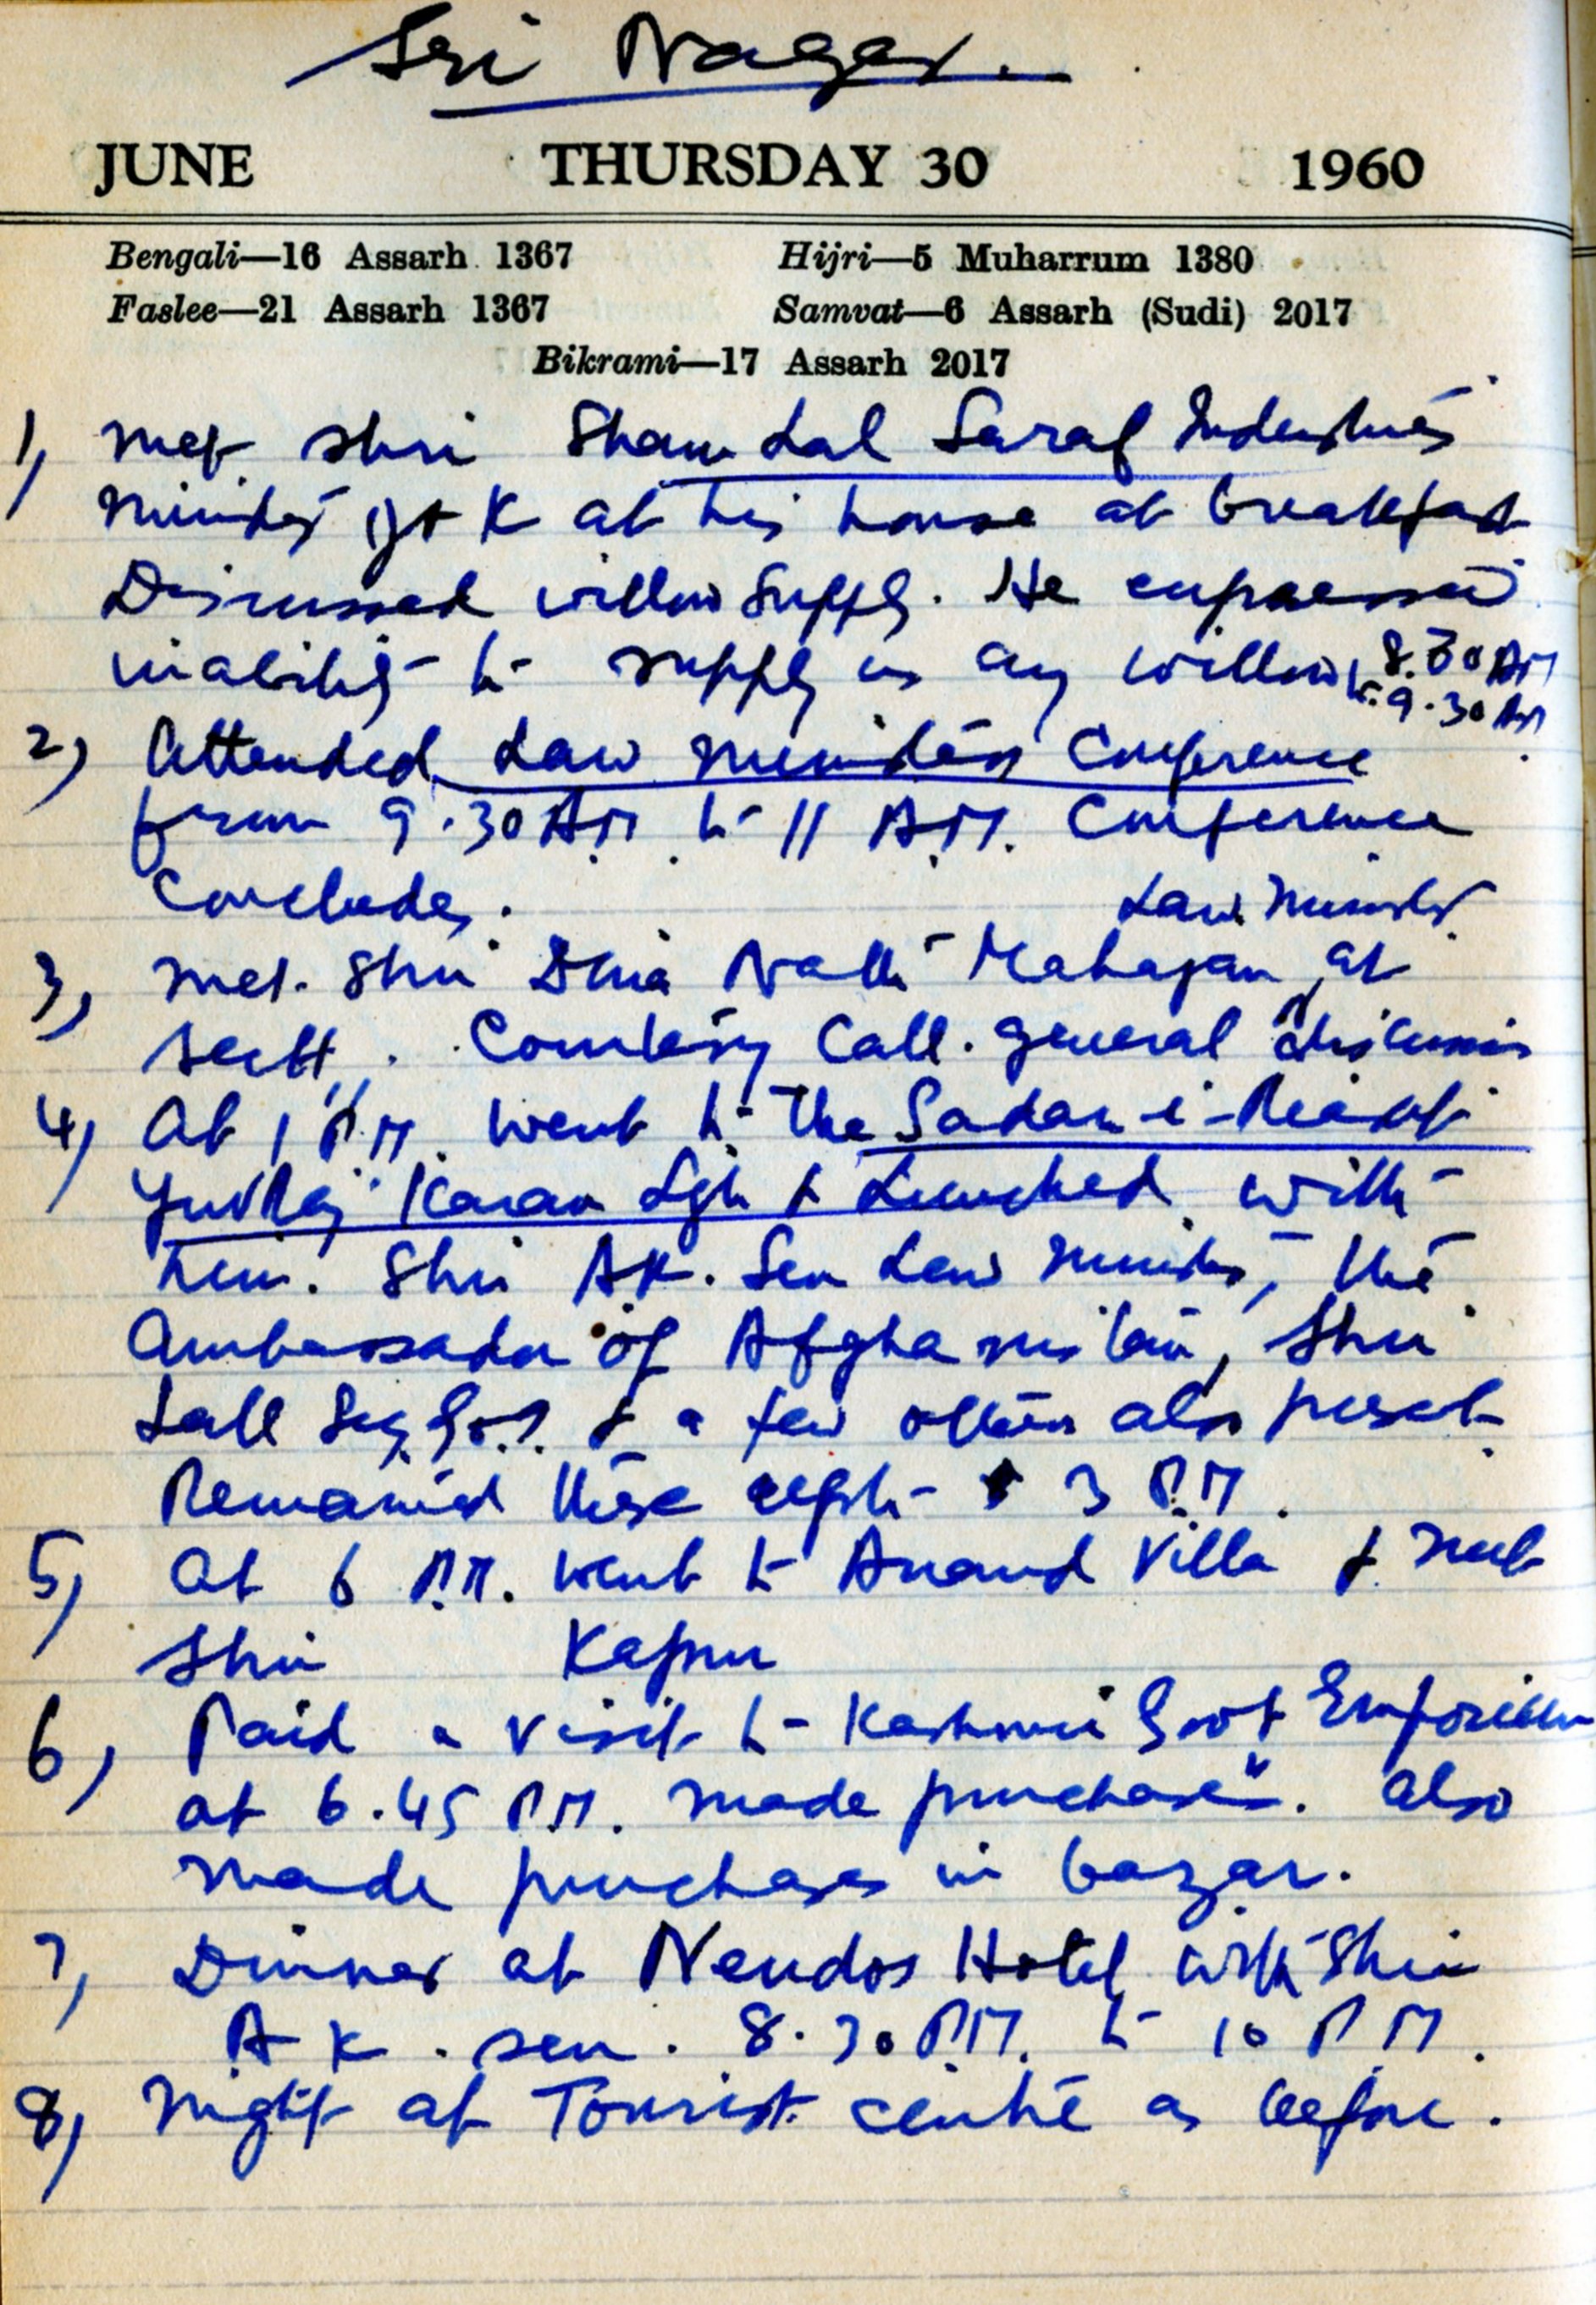 Sri Nagar.
JUNE THURSDAY 30 1960
Bengali—16 Assarh 1367 Hijri—5 Muharrum 1380
Faslee—21 Assarh 1367 Samvat—6 Assarh (Sudi) 2017
Bikrami—17 Assarh 2017
1) Met Shri Sham Lal Saraf Industries
Minister J & K at his house at breakfast
Discussed willow supply. He expressed
inability to supply us any willow 8.30 AM
to 9.30 AM
2) Attended Law Ministers Conference
from 9.30 AM. to 11 A.M. Conference
concludes.
Law Minister
3) Met. Shri Dina Nath Mahajan at
Sectt. Courtesy Call. general discussion
4) At 1 P.M. went to the Sadar-i-Reasat
Yuvraj Karan Sgh & Lunched with
him. Shri A.K. Sen Law Minister, the
Ambassador of Afghanistan, Shri
Lall & a few others also present
Remained there upto 3 P.M.
5) At 6 P.M. went to Anand Villa & met
Shri Kapur
6) Paid a visit to Kashmir Govt Emporium
at 6.45 P.M. made purchases. Also
made purchases in bazar.
7) Dinner at Nendos Hotel with Shri
A K. Sen. 8.30 P.M. to 10 P M.
8) Night at Tourist centre as before.